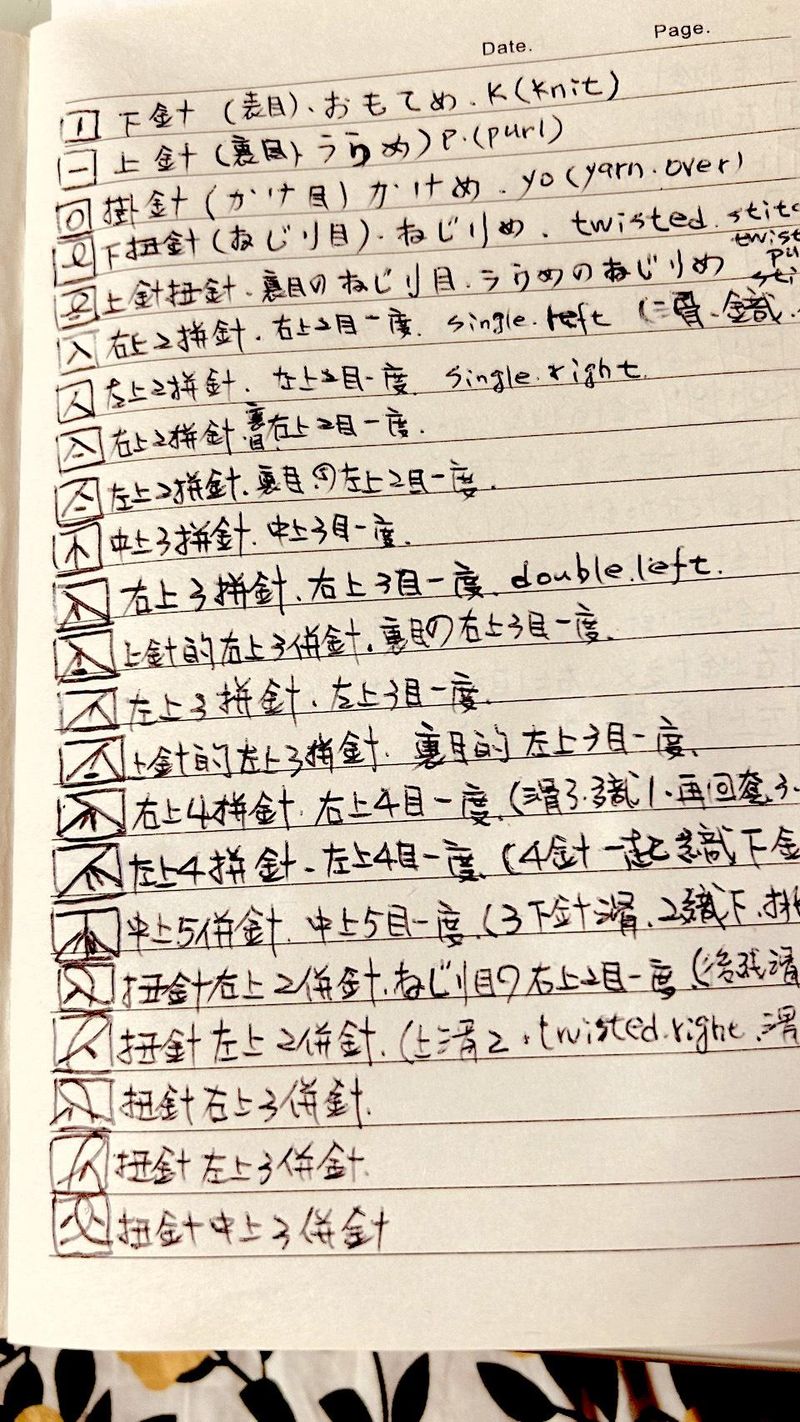 Date. Page.
下針 (表目)、おもてめ、K(knit)
上針 (裏目)、うらめ) P.(purl)
掛針 (かけ目) かけめ、yo (yarn.over)
下扭針 (ねじり目)、ねじりめ、twisted. stitc
上針扭針、裏目のねじり目、うらめのねじりめ twist pu sti
右上2拼針、右上2目一度、single.left (滑、織、
左上2拼針、左上2目一度、single.right
右上2拼針 裏目 右上2目一度、
左上2拼針、裏目の左上2目一度、
中上3拼針、中上3目一度、
右上3拼針、右上3目一度、double.left.
上針的右上3併針、裏目の右上3目一度、
左上3拼針、左上3目一度、
上針的左上3拼針、裏目的左上3目一度、
右上4拼針、右上4目一度、(滑3、織1、再回套3、
左上4拼針、左上4目一度、(4針一起織下金
中上5併針、中上5目一度、(3下針滑、2織下、
扭針右上2併針、ねじり目の右上2目一度、(後
扭針左上2併針、(上滑2、twisted.right、滑
扭針右上3併針、
扭針左上3併針、
扭針中上3併針